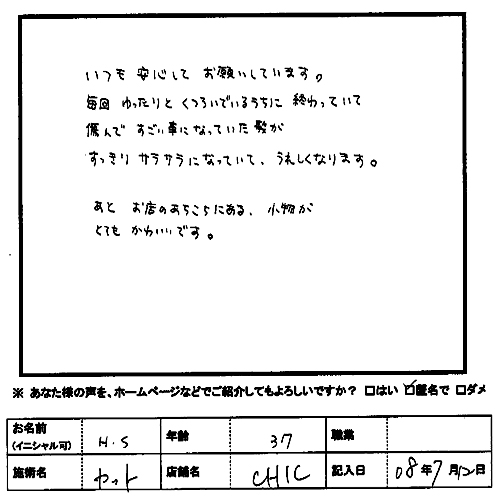 いつも 安心して お願いしています。
毎回 ゆったりと くつろいでいるうちに 終わっていて
傷んで すごい事になっていた髪が
すっきり サラサラになっていて、うれしくなります。
あと お店のあちこちにある、小物が
とても かわいいです。
※ あなた様の声を、ホームページなどでご紹介してもよろしいですか? □はい ☑匿名で □ダメ
お名前 (イニシャル可) H.S 年齢 37 職業
施術名 カット 店舗名 CHIC 記入日 08年7月12日